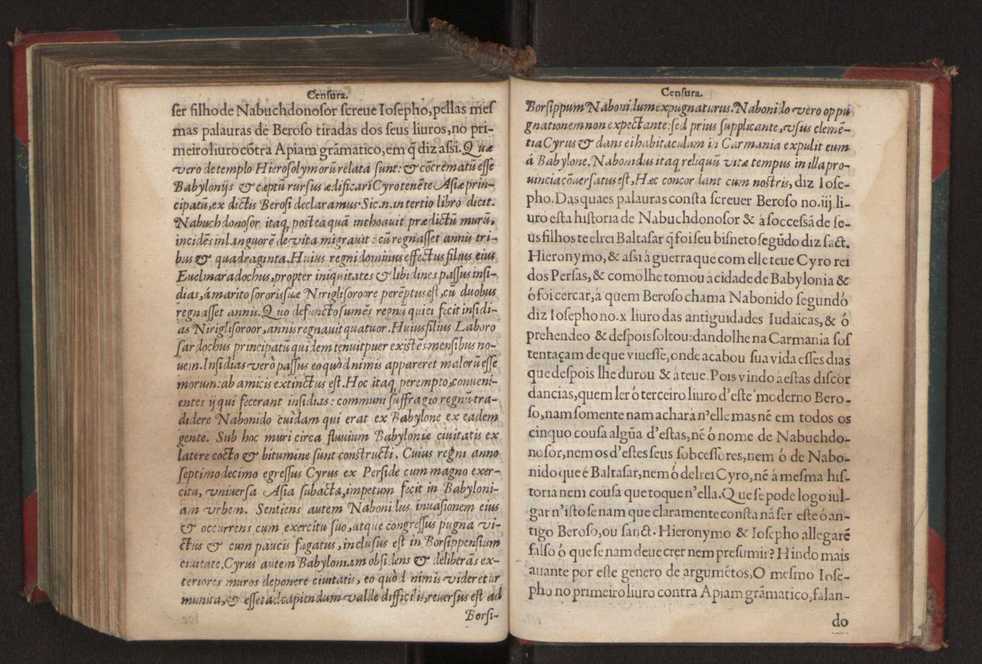 Censura.
ser filho de Nabuchdonosor screue Iosepho, pellas mes
mas palauras de Beroso tiradas dos seus liuros, no pri-
meiro liuro cõtra Apiam grãmatico, em q̃ diz assi. Quæ
vero de templo Hierosolymorũ relata sunt: & cõcrematũ esse
Babylonijs & cœptũ rursus ædificari Cyro tenẽte Asiæ prin-
cipatũ, ex dictis Berosi declaramus. Sic.n. in tertio libro dicit.
Nabuchdonosor itaq, postea quã inchoauit prædictũ murũ,
incidẽs in languorẽ de vita migrauit: cũ regnasset annis tri-
bus & quadraginta. Huius regni dominus effectus filius eius
Euelmaradochus, propter iniquitates & libidines passus insi-
dias, á marito sororis suæ Niriglisoroore perẽptus est, cũ duobus
regnasset annis. Quo defuncto sumẽs regnũ qui ei fecit insidi-
as Niriglisoroor, annis regnauit quatuor. Huius filius Laboro
sardochus principatũ quidem tenuit puer existẽs mensibus no-
uem. Insidias vero passus eo quòd nimis appareret malorũ esse
morum: ab amicis extinctus est. Hoc itaq, perempto, conueni-
entes ij qui fecerant insidias: communi suffragio regnũ tra-
didere Nabonido cuidam qui erat ex Babylone ex eadem
gente. Sub hoc muri circa fluuium Babyloniæ ciuitatis ex
latere cocto & bitumine sunt constructi. Cuius regni anno
septimodecimo egressus Cyrus ex Perside cum magno exer-
citu, vniuersa Asia subacta, impetum fecit in Babyloni-
am vrbem. Sentiens autem Nabonidus inuasionem eius
& occurrens cum exercitu suo, atque congressus pugna vi-
ctus & cum paucis fugatus, inclusus est in Borsippensium
ciuitate. Cyrus autem Babyloniam obsidens & deliberãs ex-
teriores muros deponere ciuitatis, eo quòd nimis videretur
munita, & esset ad capiendum valde difficilis, reuersus est ad
Borsi-
Censura.
Borsippum Nabonidum expugnaturus. Nabonido vero oppu
gnationem non expectante: sed prius supplicante, vsus clemẽ-
tia Cyrus & dans ei habitaculum in Carmania expulit eum
á Babylone. Nabonidus itaq reliquũ vitæ tempus in illa pro-
uincia cõuersatus est, Hæc concordant cum nostris, diz Iose-
pho. Das quaes palauras consta screuer Beroso no. iij. li-
uro esta historia de Nabuchdonosor & à soccessã de se-
us filhos te elrei Baltasar q̃ foi seu bisneto segũdo diz sact.
Hieronymo, & assi à guerra que com elle teue Cyro rei
dos Persas, & como lhe tomou a cidade de Babylonia &
ó foi cercar, á quem Beroso chama Nabonido segundó
diz Iosepho no. x liuro das antiguidades Iudaicas, & ó
prehendeo & despois soltou: dandolhe na Carmania sos
tentaçam de que viuesse, onde acabou sua vida esses dias
que despois lhe durou & á teue. Pois vindo a estas discor
dancias, quem ler ó terceiro liuro d'este moderno Bero-
so, nam somente nam achara n'elle mas nẽ em todos os
cinquo cousa algũa d'estas, nẽ ó nome de Nabuchdo-
nosor, nem os d'estes seus sobcessores, nem ó de Nabo-
nido que é Baltasar, nem ó del rei Cyro, nẽ á mesma his-
toria nem cousa que toque n'ella. Que se pode logo iul-
gar n'isto se nam que claramente consta nã ser este ó an-
tigo Beroso, ou sanct. Hieronymo & Iosepho allegarẽ
falso ó que se nam deue crer nem presumir? Hindo mais
auante por este genero de argumẽtos, O mesmo Iose-
pho no primeiro liuro contra Apiam grãmatico, falan-
do